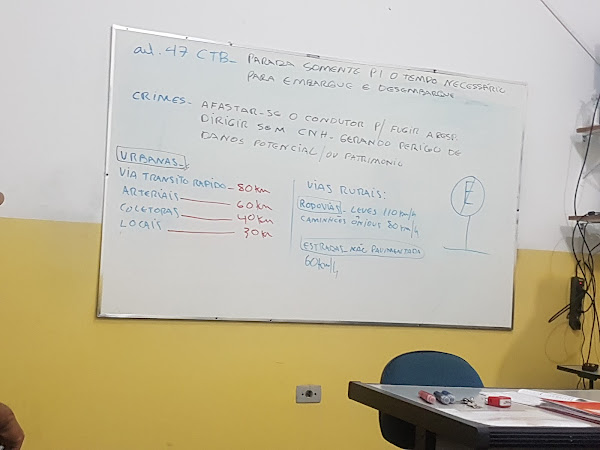 art. 47 CTB - PARADA SOMENTE P/ O TEMPO NECESSÁRIO
PARA EMBARQUE E DESEMBARQUE
CRIMES - AFASTAR-SE O CONDUTOR P/ FUGIR A RESP.
DIRIGIR SEM CNH - GERANDO PERIGO DE
DANOS POTENCIAL/OU PATRIMONIO
URBANAS
VIA TRANSITO RAPIDO - 80 km
ARTERIAIS 60 km
COLETORAS 40 km
LOCAIS 30 km
VIAS RURAIS:
RODOVIAS - LEVES 110 km/h
CAMINHÕES ÔNIBUS 80 km/h
ESTRADAS NÃO PAVIMENTADA
60 km/h
E